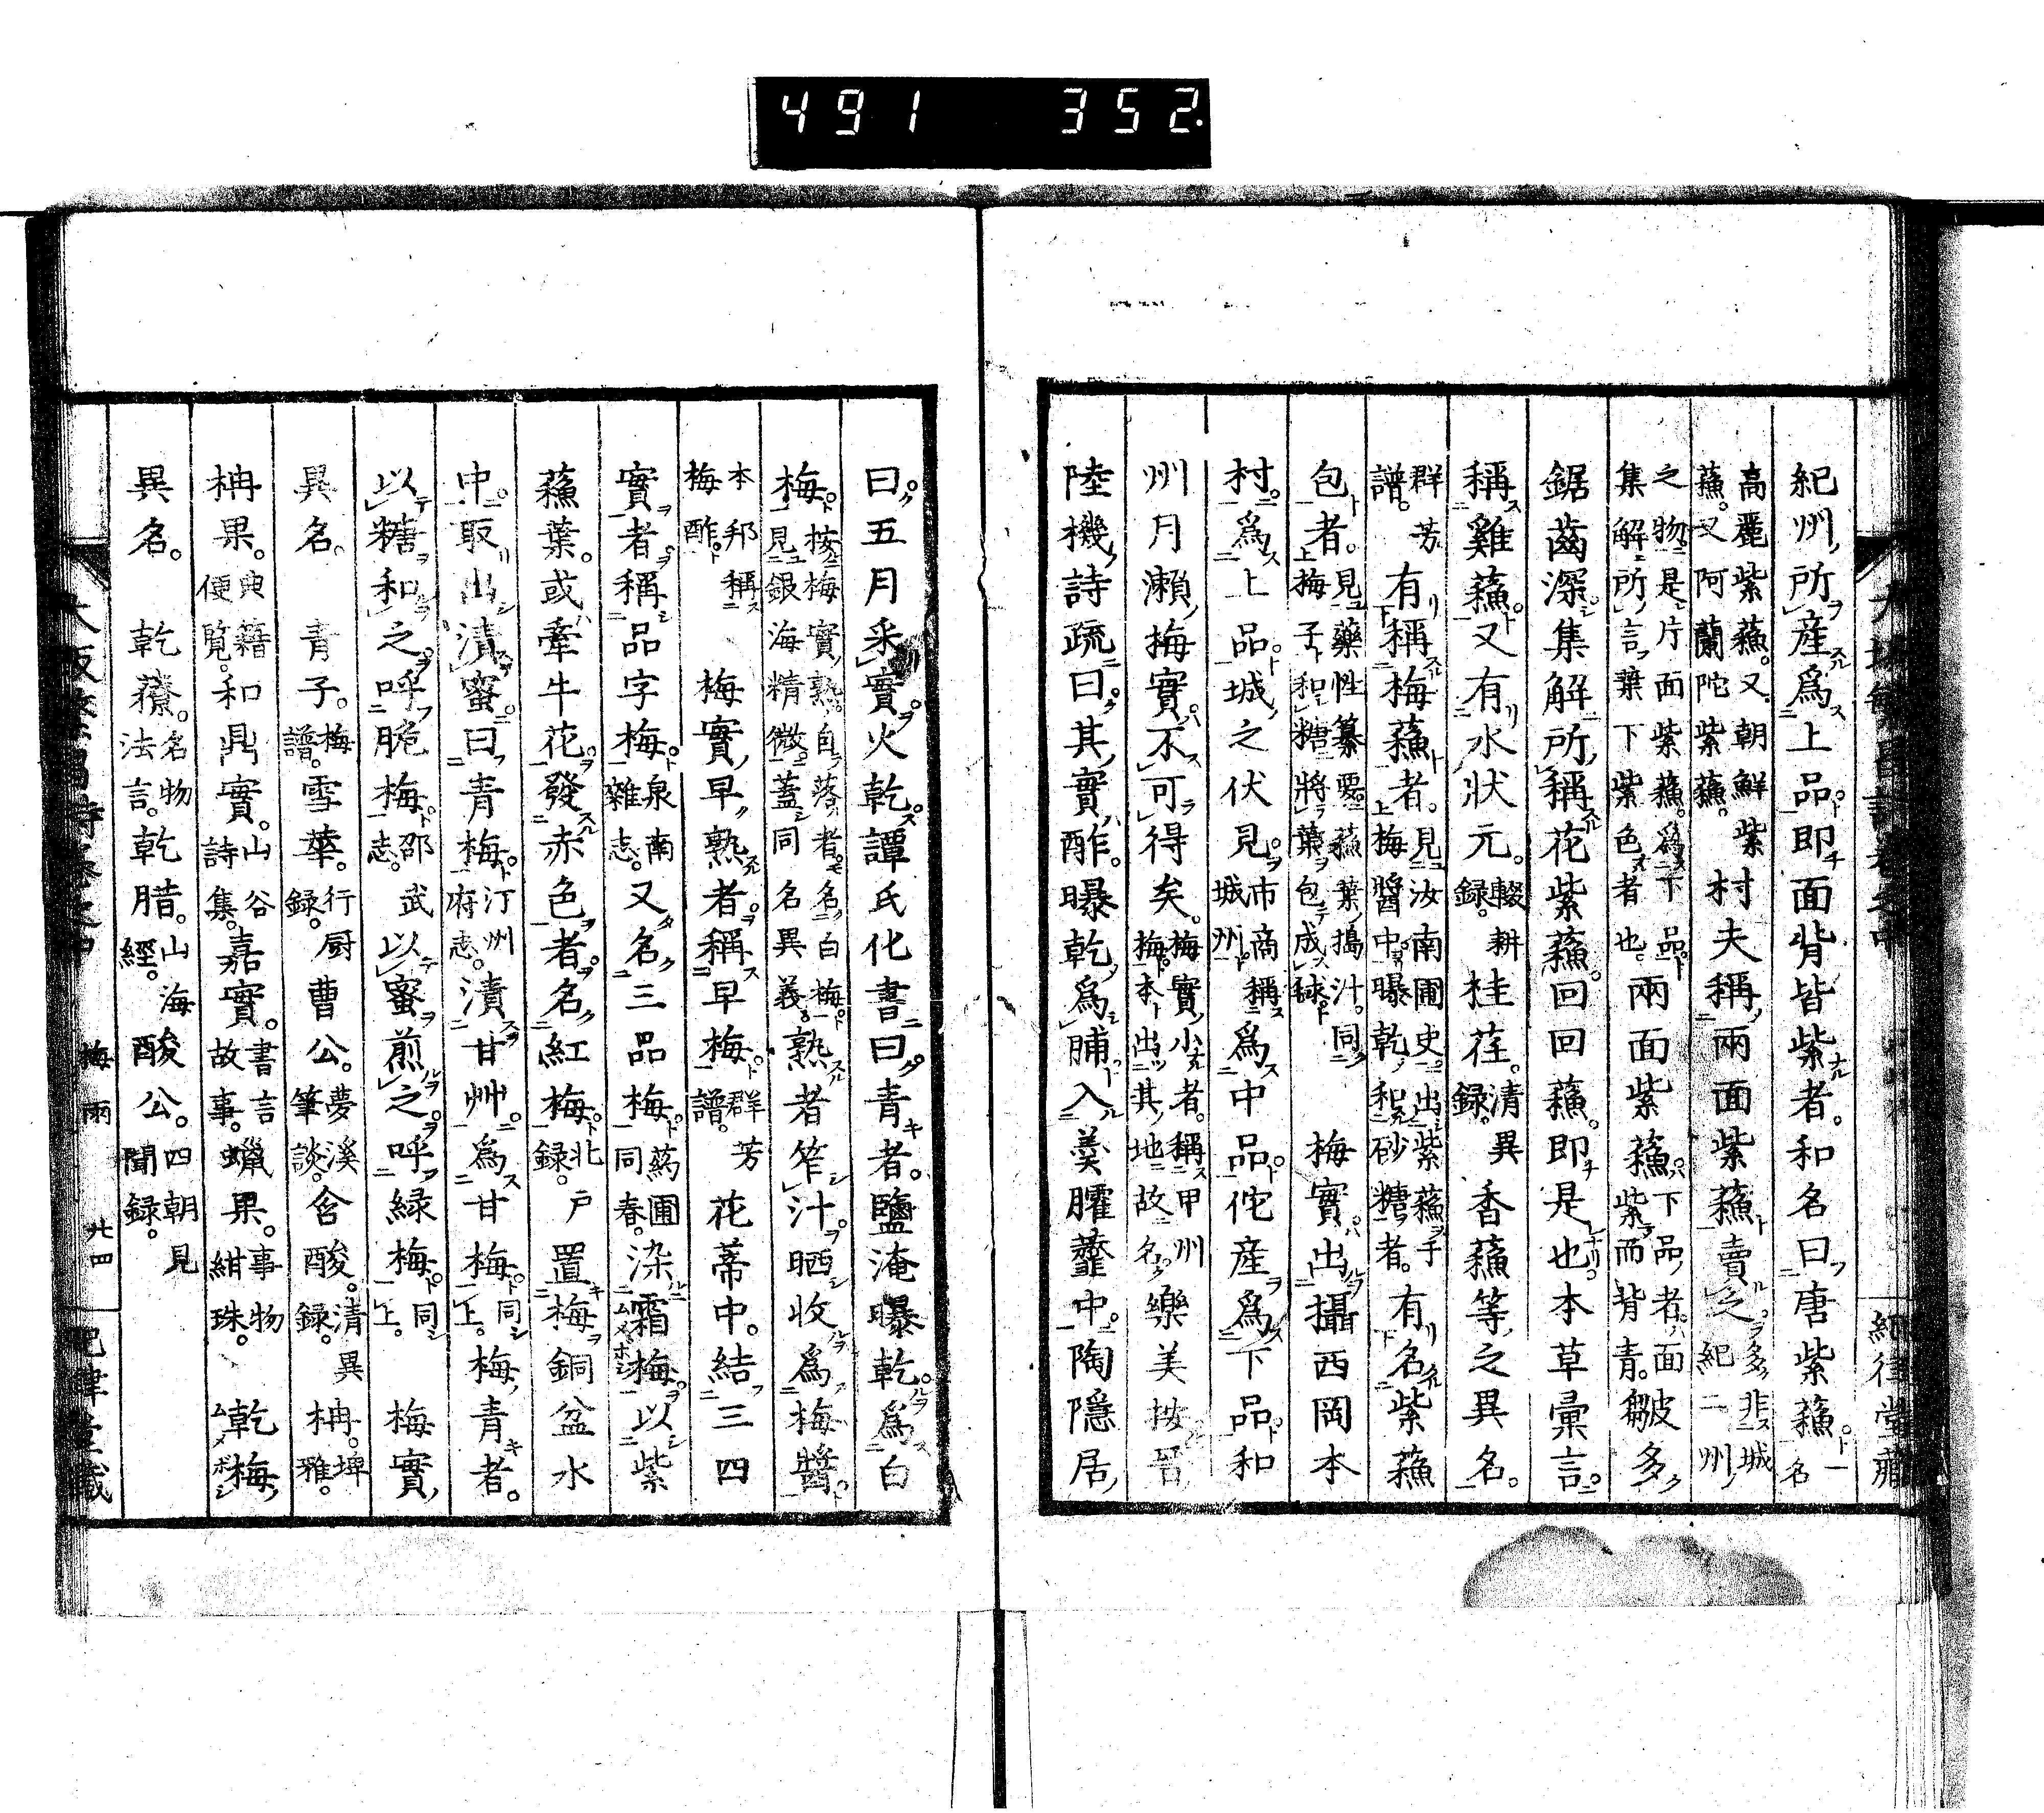 491 352
紀州所産爲上品即面背皆紫者。和名曰唐紫蘓一名
高麗紫蘓。又朝鮮紫蘓。又阿蘭陀紫蘓。村夫稱兩面紫蘓賣之多非城紀二州
之物是片面紫蘓。爲下品集解所言葉下紫色者也。兩面紫蘓下品者面紫而背青。皺皮多
鋸齒深集解所稱花紫蘓。回回蘓。即是也本草彙言
稱雞蘓又有水狀元。輟耕録。桂荏。清異録。香蘓等之異名。
群芳譜。有稱梅蘓者。見汝南圃史出紫蘓于梅醬中曝乾和砂糖者。有名紫蘓
包者。見藥性纂要蘓葉搗汁。同梅子和糖將葉包成毬 梅實出攝西岡本
村爲上品城之伏見市商稱城州爲中品佗産爲下品和
州月瀬梅實不可得矣。梅實小者。稱甲州梅本出其地故名樂美按晉
陸機詩疏曰其實酢。曝乾爲脯入羹臛虀中陶隱居
曰五月釆實火乾譚氏化書曰青者。鹽淹曝乾爲白
梅按梅實熟自落者名白梅見銀海精微蓋同名異義。熟者笮汁。晒收爲梅醬
本邦稱梅酢 梅實早熟者稱早梅群芳譜。花蒂中。結三四
實者稱品字梅泉南雜志。又名三品梅藥圃同春。染霜梅以紫
蘓葉。或牽牛花發赤色者名紅梅北戸録。置梅銅盆水
中取出漬蜜曰青梅汀州府志。漬甘艸爲甘梅同上。梅青者。
以糖和之呼脆梅邵武志。以蜜煎之呼緑梅同上。 梅實
異名。青子。梅譜。雪華。行厨録。曹公。夢溪筆談。含酸。清異録。柟。埤雅。
柟果。典籍便覧。和鼎實。山谷詩集。嘉實。書言故事。蠟果。事物紺珠。 乾梅
異名。乾䕩。名物法言。乾腊。山海經。酸公。四朝聞見録。
梅雨 廿四